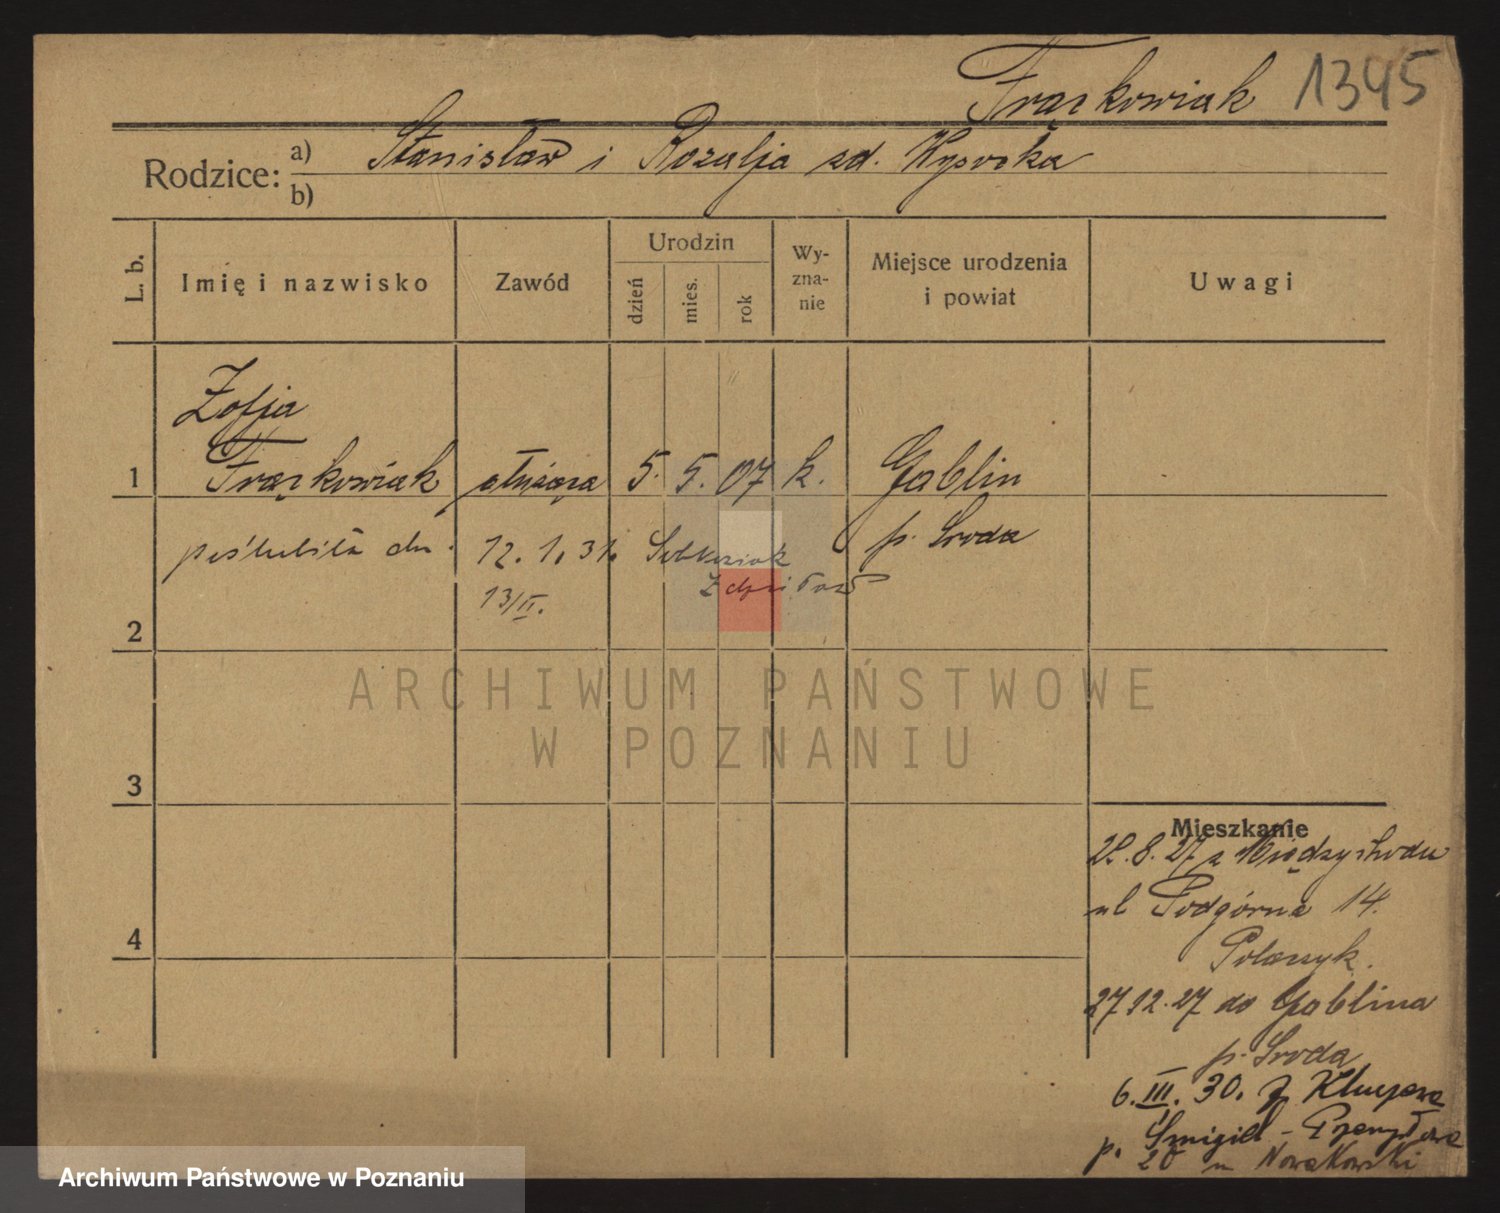 Frąckowiak 1345
Rodzice: a) Stanisław i Rozalja zd. Wysocka
b)
L. b.
Imię i nazwisko
Zawód
Urodzin
dzień
mies.
rok
Wy-
zna-
nie
Miejsce urodzenia
i powiat
Uwagi
Zofja
1 Frąckowiak służąca 5. 5. 07 k. Gablin
p. Środa
poślubiła dn. 12. 1. 31.
Zdzisław
13/II.
2
3
4
ARCHIWUM PAŃSTWOWE
W POZNANIU
Mieszkanie
8. 27 z Międzychodu
ul Podgórna 14.
27 12. 27 do Gablina
p. Środa
6. III. 30. z
p. Śmigiel - Przemysłowa
20 m Nowakowski
Archiwum Państwowe w Poznaniu